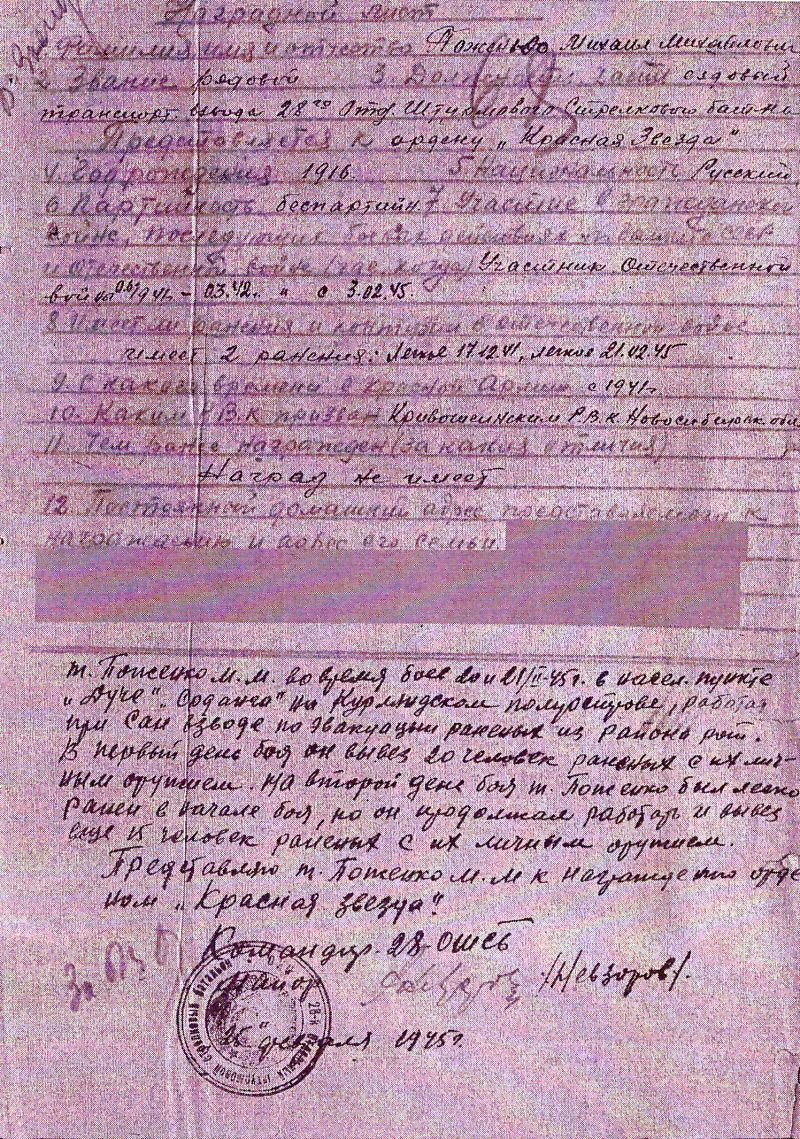 Наградной лист
1. Фамилия имя и отчество Поженько Михаил Михайлович
2. Звание рядовой 3. Должность, часть ездовый
транспорт. взвода 28го Отд. Штурмового Стрелкового бат-на
Представляется к ордену „Красная Звезда"
4. Год рождения 1916. 5. Национальность Русский
6. Партийность беспартийн. 7. Участие в гражданской
войне, последующих боевых действиях по защите СССР
и отечественной войне (где, когда) Участник Отечественной
войны 06.1941 – 03.42г. и с 3.02.45.
8. Имеет ли ранения и контузии в отечественной войне
имеет 2 ранения: легкое 17.12.41, легкое 21.02.45
9. С какого времени в красной Армии с 1941г.
10. Каким Р.В.К призван Кривошеинским Р.В.К Новосибирск. обл
11. Чем ранее награжден (за какия отличия)
Наград не имеет
12. Постоянный домашний адрес представляемого к
награждению и адрес его семьи
т. Поженко М.М. во время боев 20 и 21/II-45г. в насел. пункте
на Курляндском полуострове, работал
при Сан взводе по эвакуации раненых из района рот.
В первый день боя он вывез 20 человек раненых с их лич-
ным оружием. На второй день боя т. Поженко был легко
ранен в начале боя, но он продолжал работать и вывез
еще 15 человек раненых с их личным оружием.
Представляю т. Поженко М.М к награждению орде
ном „Красная звезда".
Командир 28 ОШСБ
Майор /Невзоров/.
февраля 1945г.